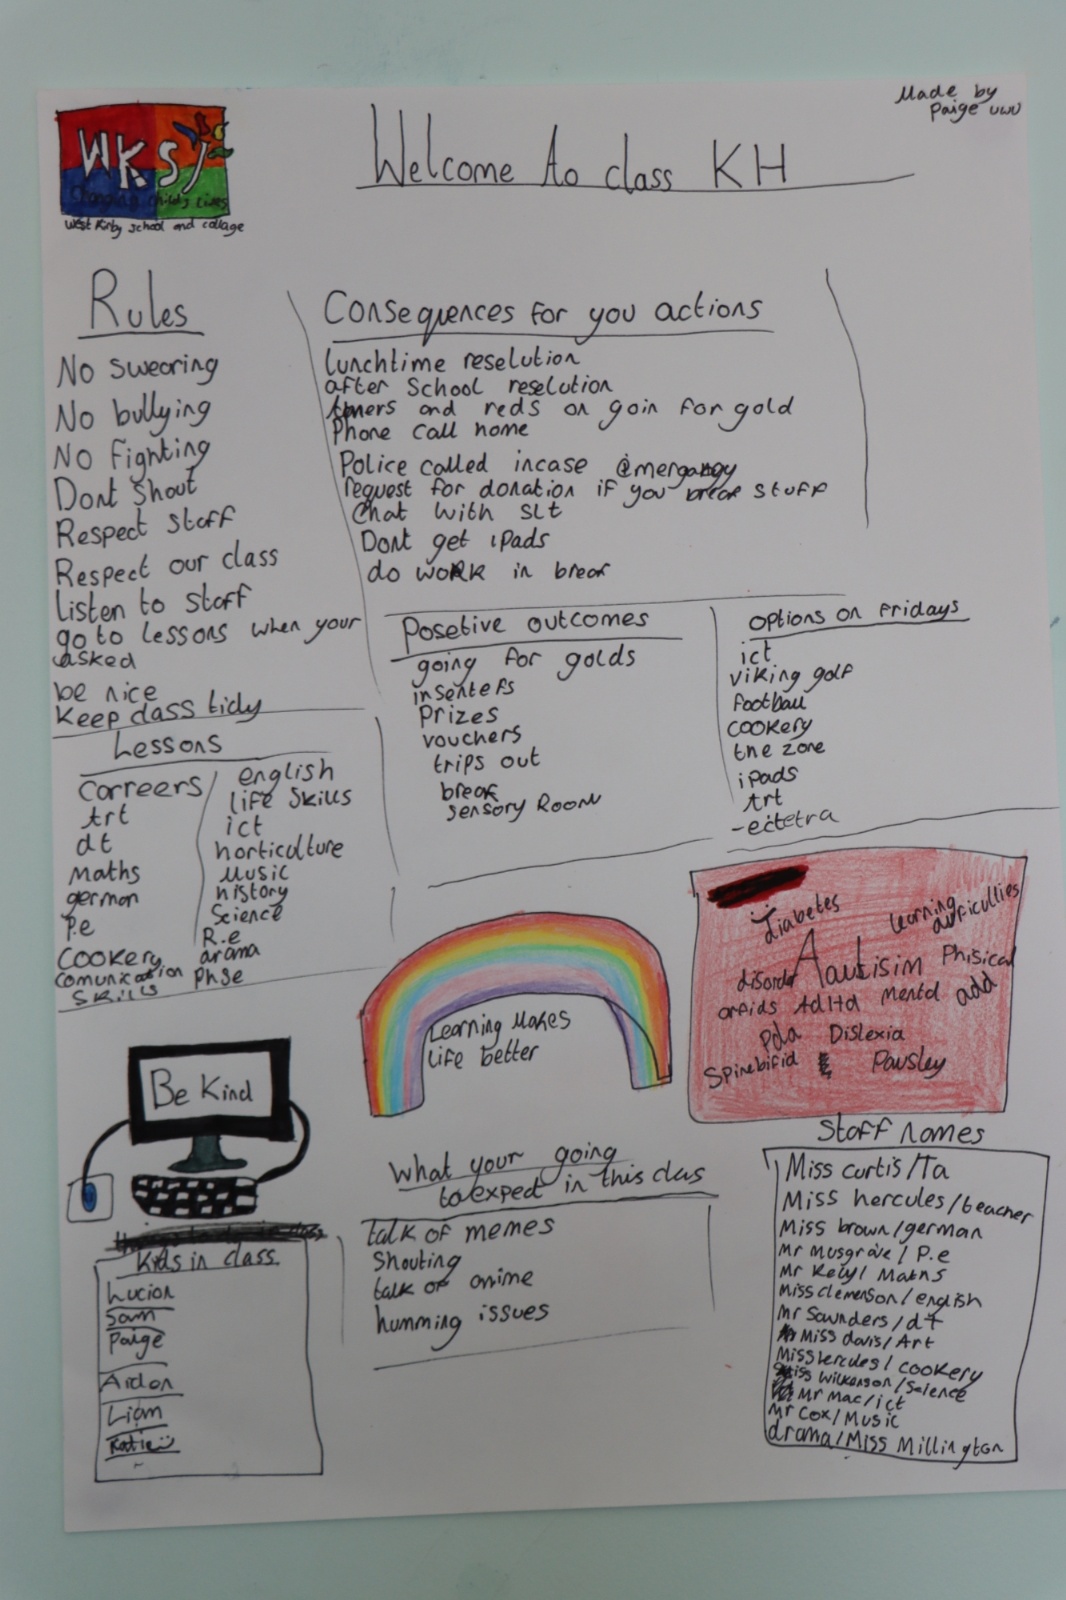 Made by
Paige uwu
WKS
Changing child's lives
West Kirby school and collage
Welcome to class KH
Rules
No swearing
No bullying
No Fighting
Dont shout
Respect staff
Respect our class
Listen to staff
go to lessons when your
asked
be nice
Keep class tidy
Consequences for you actions
lunchtime reselution
after School reselution
and reds on goin for gold
Phone call home
Police called incase
request for donation if you break stuff
Chat with slt
Dont get ipads
do woRK in break
Posetive outcomes
going for golds
insentefs
Prizes
vouchers
trips out
break
sensory Room
options on Fridays
ict
viking golf
football
cookery
the zone
ipads
Art
-ectetra
Lessons
Carreers
Art
dt
Maths
german
P.e
Cookery
Comunication
Skills
english
life skills
ict
horticulture
Music
history
Science
R.e
drama
Phse
Learning Makes
life better
Diabetes
learning
difficullies
disorder
Aautisim
Phisical
arfids
AdHd
mental
add
Pda
Dislexia
Spinebifid
Pawsley
Be Kind
What your going
to expect in this class
talk of memes
Shouting
talk of anime
humming issues
Kids in class
Lucian
Sam
Paige
Aidan
Liam
Katie
Staff names
Miss curtis/Ta
Miss hercules/teacher
Miss brown/german
Mr Musgrave/P.e
Mr Kelly/Maths
Miss clemenson/english
Mr Saunders/dt
Miss davis/Art
Miss hercules/cookery
Miss Wilkenson/Science
Mr Mac/ict
Mr Cox/Music
drama/Miss Millington